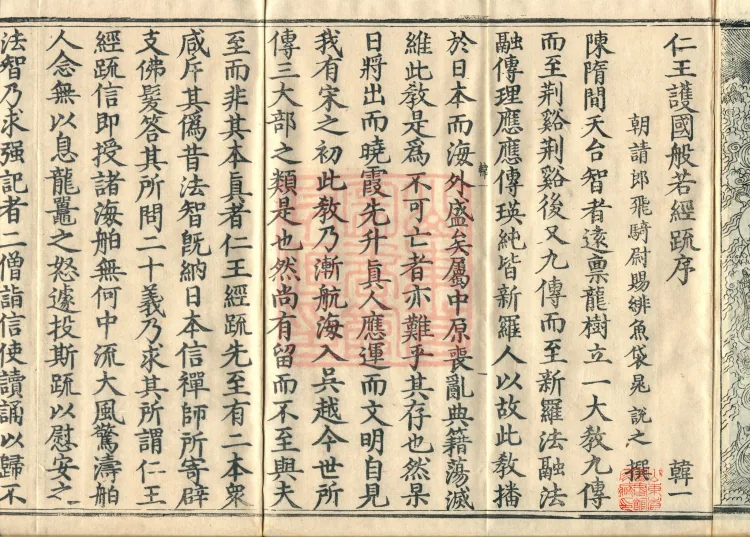 仁王護國般若經疏序 韓一
朝請郎飛騎尉賜緋魚袋晁說之撰
陳隋間天台智者遠稟龍樹立一大教九傳
而至荆谿荆谿後又九傳而至新羅法融法
融傳理應應傳瑛純皆新羅人以故此教播
於日本而海外盛矣屬中原喪亂典籍蕩滅
維此教是爲不可亡者亦難乎其存也然杲
日將出而曉霞先升眞人應運而文明自見
我有宋之初此教乃漸航海入吳越今世所
傳三大部之類是也然尚有留而不至與夫
至而非其本眞者仁王經疏先至有二本衆
咸斥其僞昔法智旣納日本信禪師所寄辟
支佛髮答其所問二十義乃求其所謂仁王
經疏信即授諸海舶無何中流大風驚濤舶
人念無以息龍鼉之怒遽投斯疏以慰安之
法智乃求强記者二僧詣信使讀誦以歸不
韓一